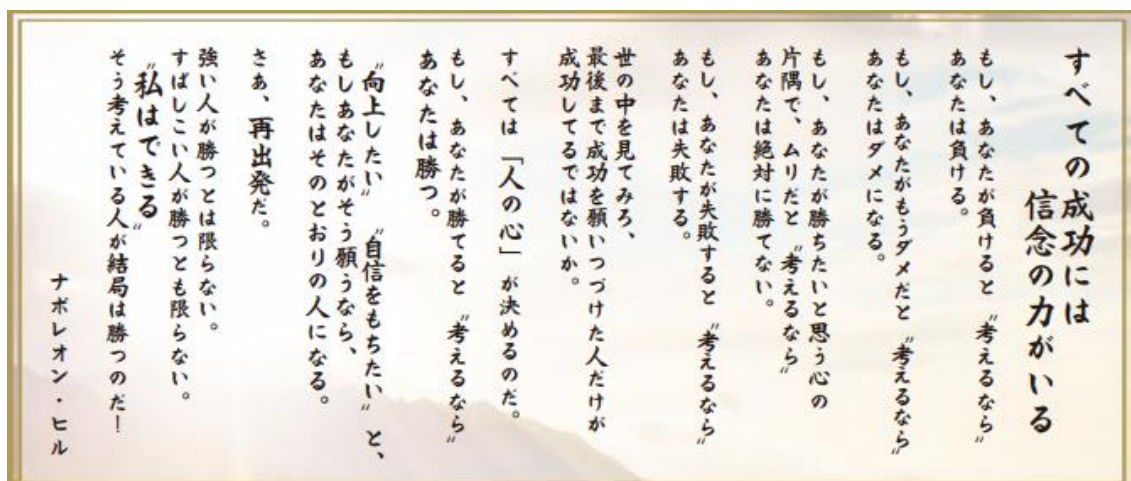 すべての成功には
信念の力がいる
もし、あなたが負けると〝考えるなら〟
あなたは負ける。
もし、あなたがもうダメだと〝考えるなら〟
あなたはダメになる。
もし、あなたが勝ちたいと思う心の
片隅で、ムリだと〝考えるなら〟
あなたは絶対に勝てない。
もし、あなたが失敗すると〝考えるなら〟
あなたは失敗する。
世の中を見てみろ、
最後まで成功を願いつづけた人だけが
成功してるではないか。
すべては「人の心」が決めるのだ。
もし、あなたが勝てると〝考えるなら〟
あなたは勝つ。
〝向上したい〟〝自信をもちたい〟と、
もしあなたがそう願うなら、
あなたはそのとおりの人になる。
さあ、再出発だ。
強い人が勝つとは限らない。
すばしこい人が勝つとも限らない。
〝私はできる〟
そう考えている人が結局は勝つのだ！
ナポレオン・ヒル